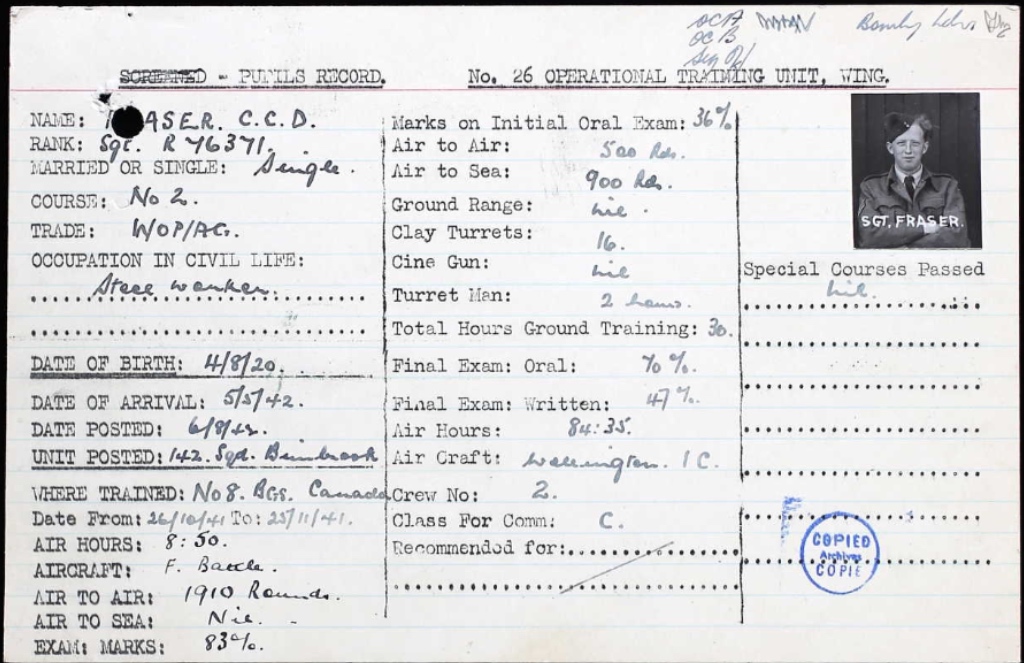 OC A
OC B
SCREENED - PUPILS RECORD. No. 26 OPERATIONAL TRAINING UNIT, WING.
NAME: ASER. C.C.D.
RANK: Sgt. R 76371.
MARRIED OR SINGLE: Single.
COURSE: No 2.
TRADE: W/OP/AG.
OCCUPATION IN CIVIL LIFE:
Steel worker.
DATE OF BIRTH: 4/8/20.
DATE OF ARRIVAL: 5/5/42.
DATE POSTED: 6/8/42.
UNIT POSTED: 142. Sqd. Binbrook
WHERE TRAINED: No 8. BGS. Canada
Date From: 26/10/41 To: 25/11/41.
AIR HOURS: 8:50.
AIRCRAFT: F. Battle.
AIR TO AIR: 1910 Rounds.
AIR TO SEA: Nil.
EXAM: MARKS: 83%.
Marks on Initial Oral Exam: 36%
Air to Air: 500 Rds.
Air to Sea: 900 Rds.
Ground Range: nil.
Clay Turrets: 16.
Cine Gun: nil
Turret Man: 2 hours.
Total Hours Ground Training: 30.
Final Exam: Oral: 70%.
Final Exam: Written: 47%.
Air Hours: 84:35.
Air Craft: Wellington. 1C.
Crew No: 2.
Class For Comm: C.
Recommended for:
SGT. FRASER.
Special Courses Passed
nil.
COPIED
Archives
COPIÉ